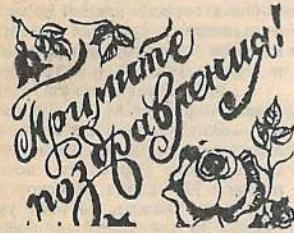 Примите
поздравления!